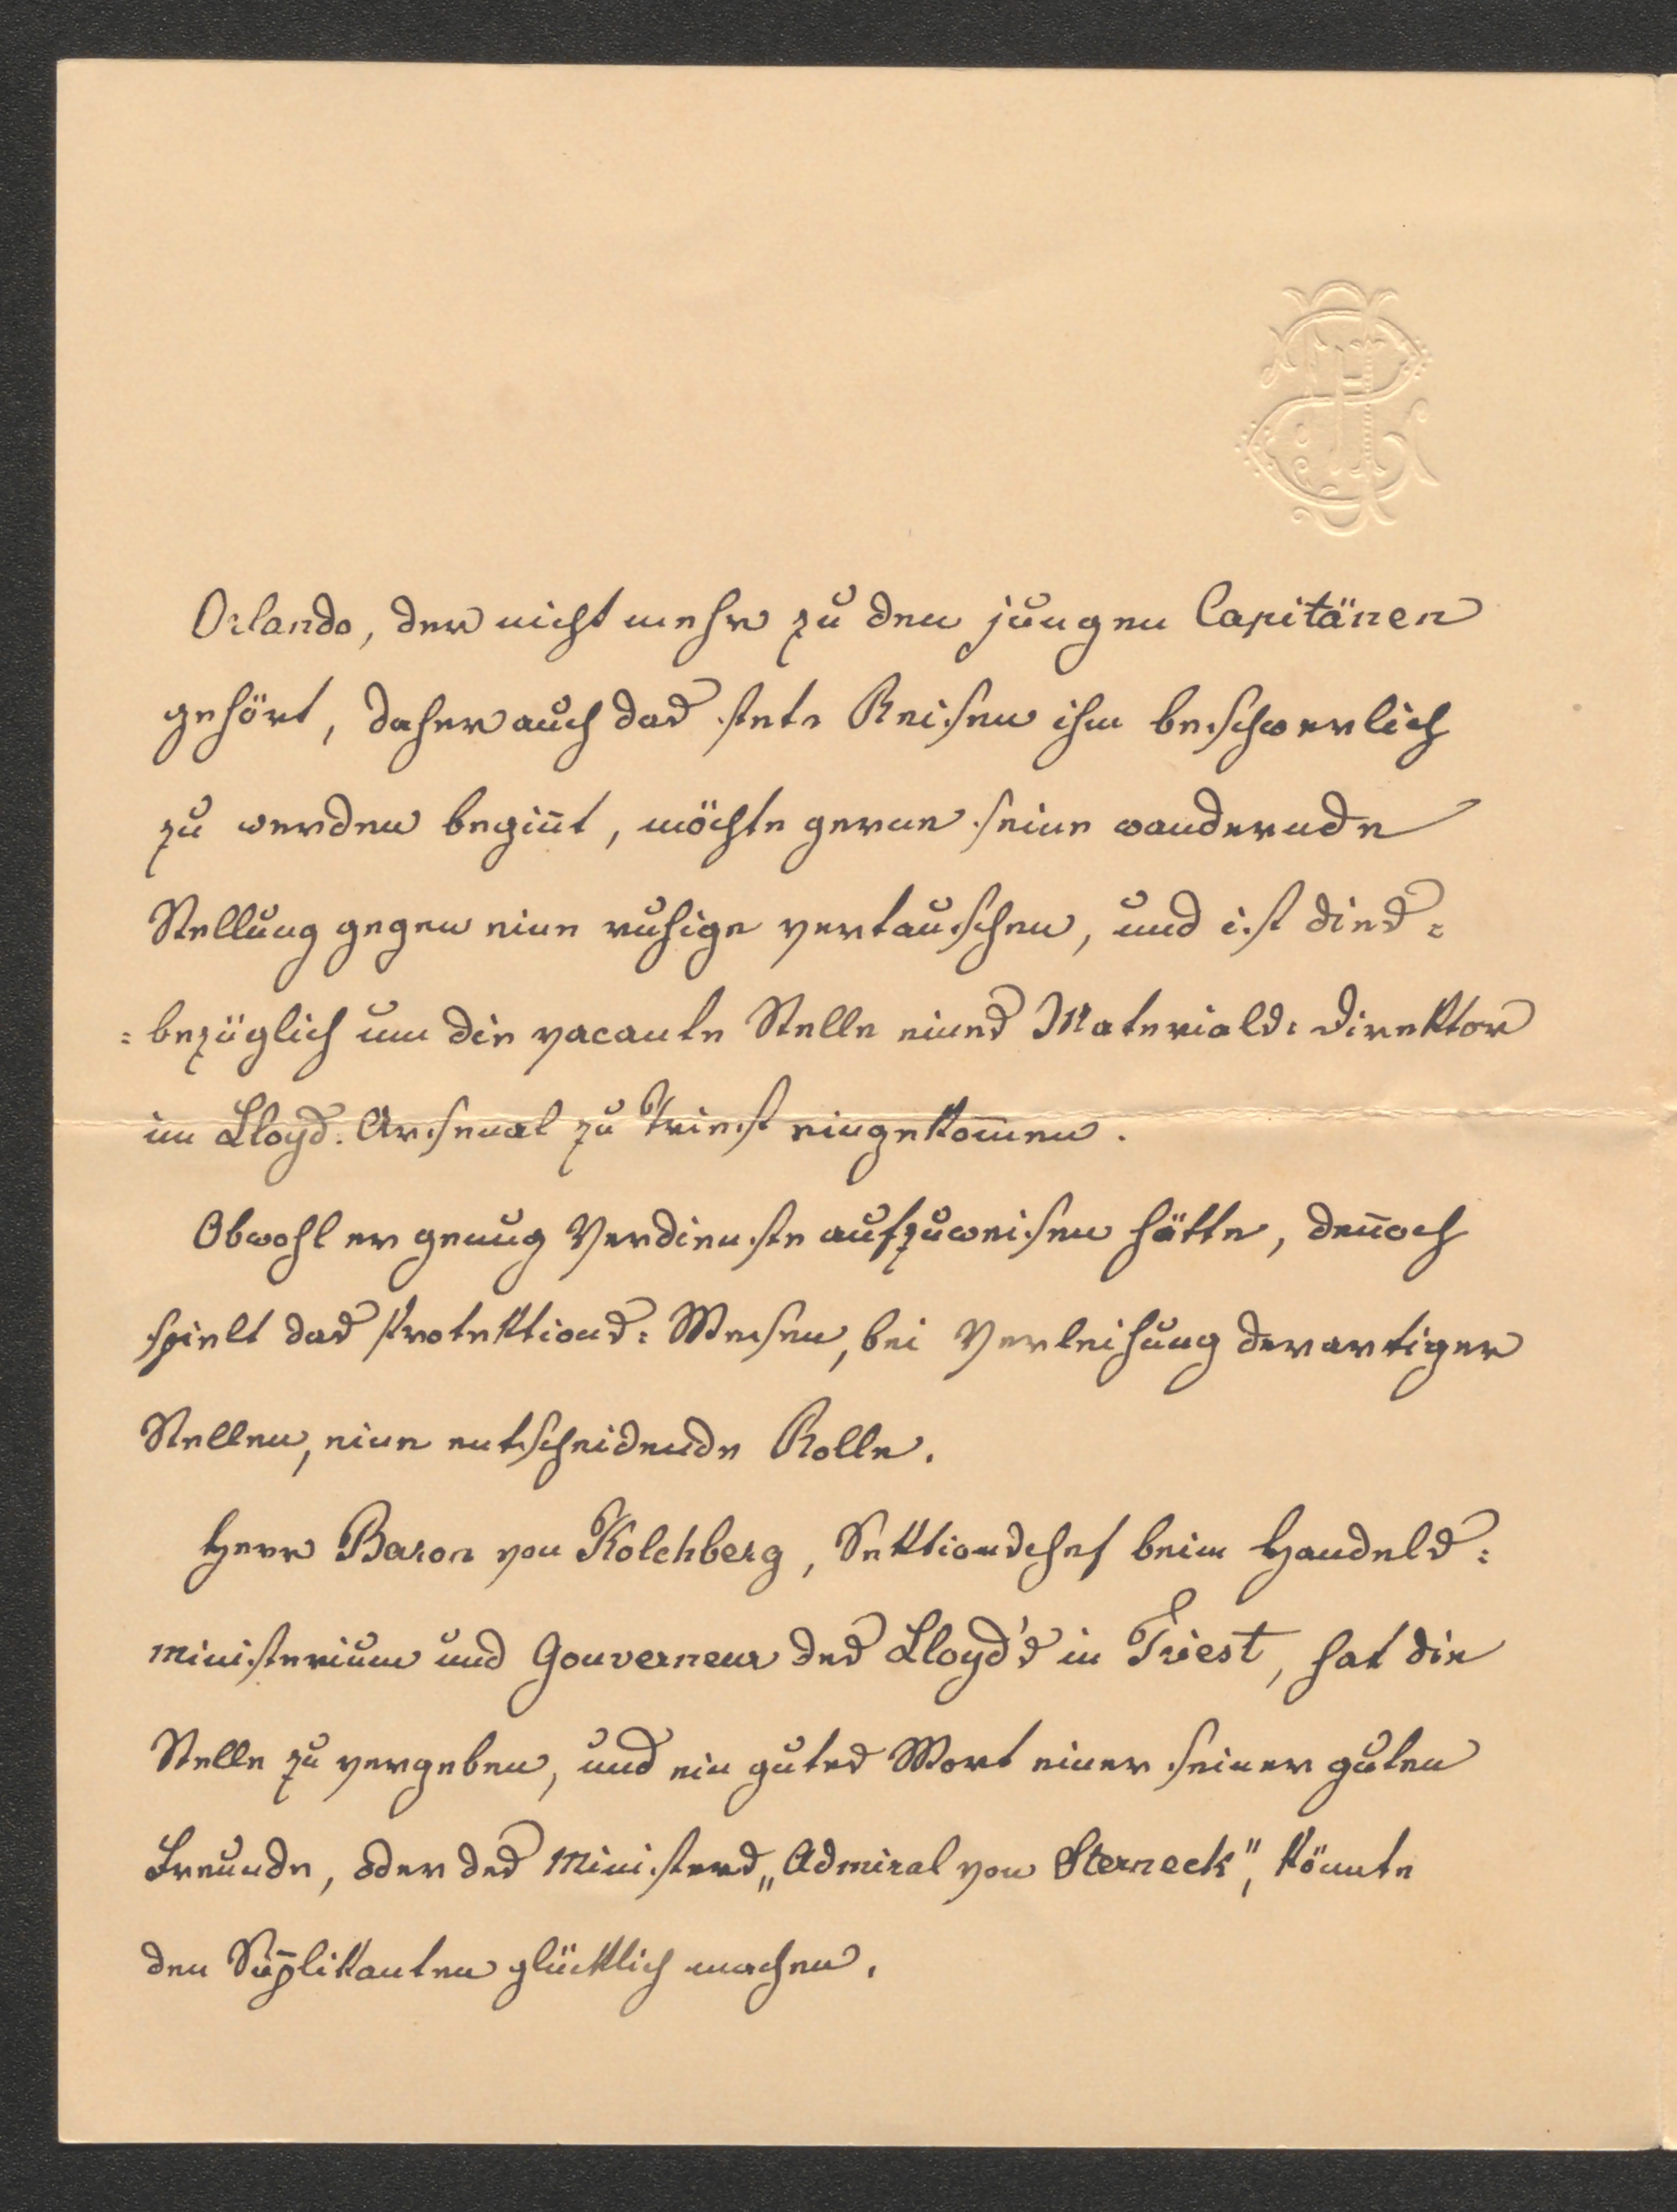 Orlando, der nicht mehr zu den jungen Capitänen
gehört, daher auch das stete Reisen ihm beschwerlich
zu werden begin̄t, möchte gerne seine wandernde
Stellung gegen eine ruhige vertauschen, und ist dies=
=bezüglich um die vacante Stelle eines Materials=Direktor
im Lloyd=Arsenal zu Triest eingekom̄en.
Obwohl er genug Verdienste aufzuweisen hätte, den̄och
spielt das Protektions=Wesen, bei Verleihung derartiger
Stellen, eine entscheidende Rolle.
Herr Baron von Kolchberg, Sektionschef beim Handels=
ministerium und Gouverneur des Lloyd's in Triest, hat die
Stelle zu vergeben, und ein gutes Wort einer seiner guten
Freunde, oder des Ministers „Admiral von Sterneck", könnte
den Sup̄likanten glücklich machen.